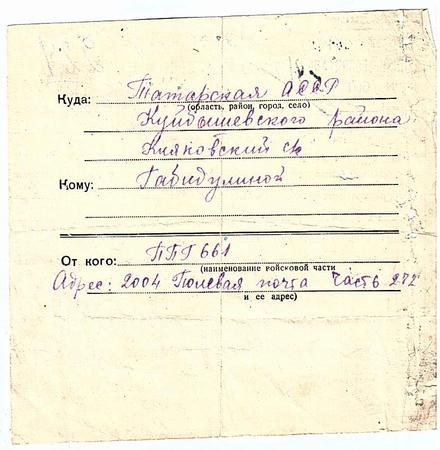 Куда: Татарская АССР
(область, район, город, село)
Куйбышевского района
Кляковский с/с
Кому: Габидулиной
От кого: ППГ 661
(наименование войсковой части
Адрес: 2004 Полевая почта Часть 272
и ее адрес)